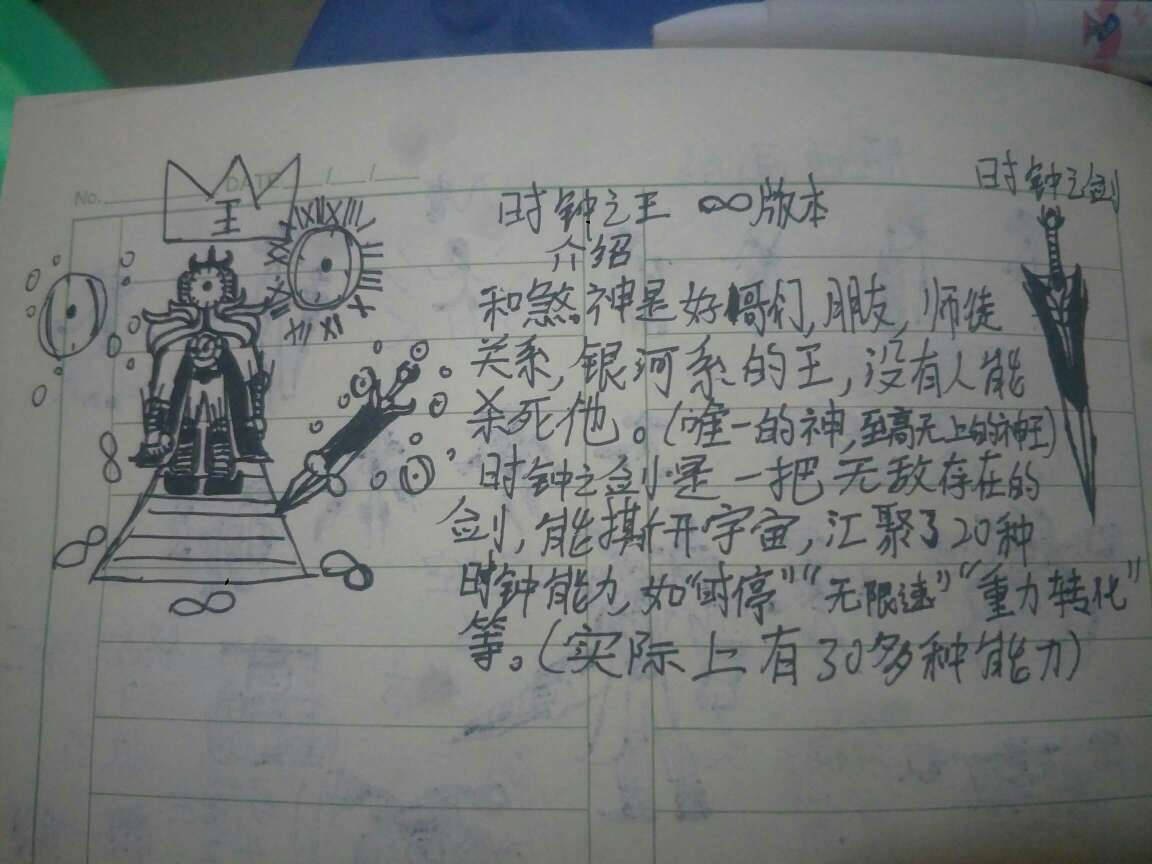 No.
DATE / /
王
XII
XI
时钟之剑
时钟之王 ∞版本
介绍
和煞神是好哥们,朋友,师徒
关系,银河系的王,没有人能
杀死他。(唯一的神,至高无上的神王)
时钟之剑是一把无敌存在的
剑,能撕开宇宙,汇聚了20种
时钟能力,如“时停”“无限速”“重力转化”
等。(实际上有30多种能力)
∞
∞
∞
∞